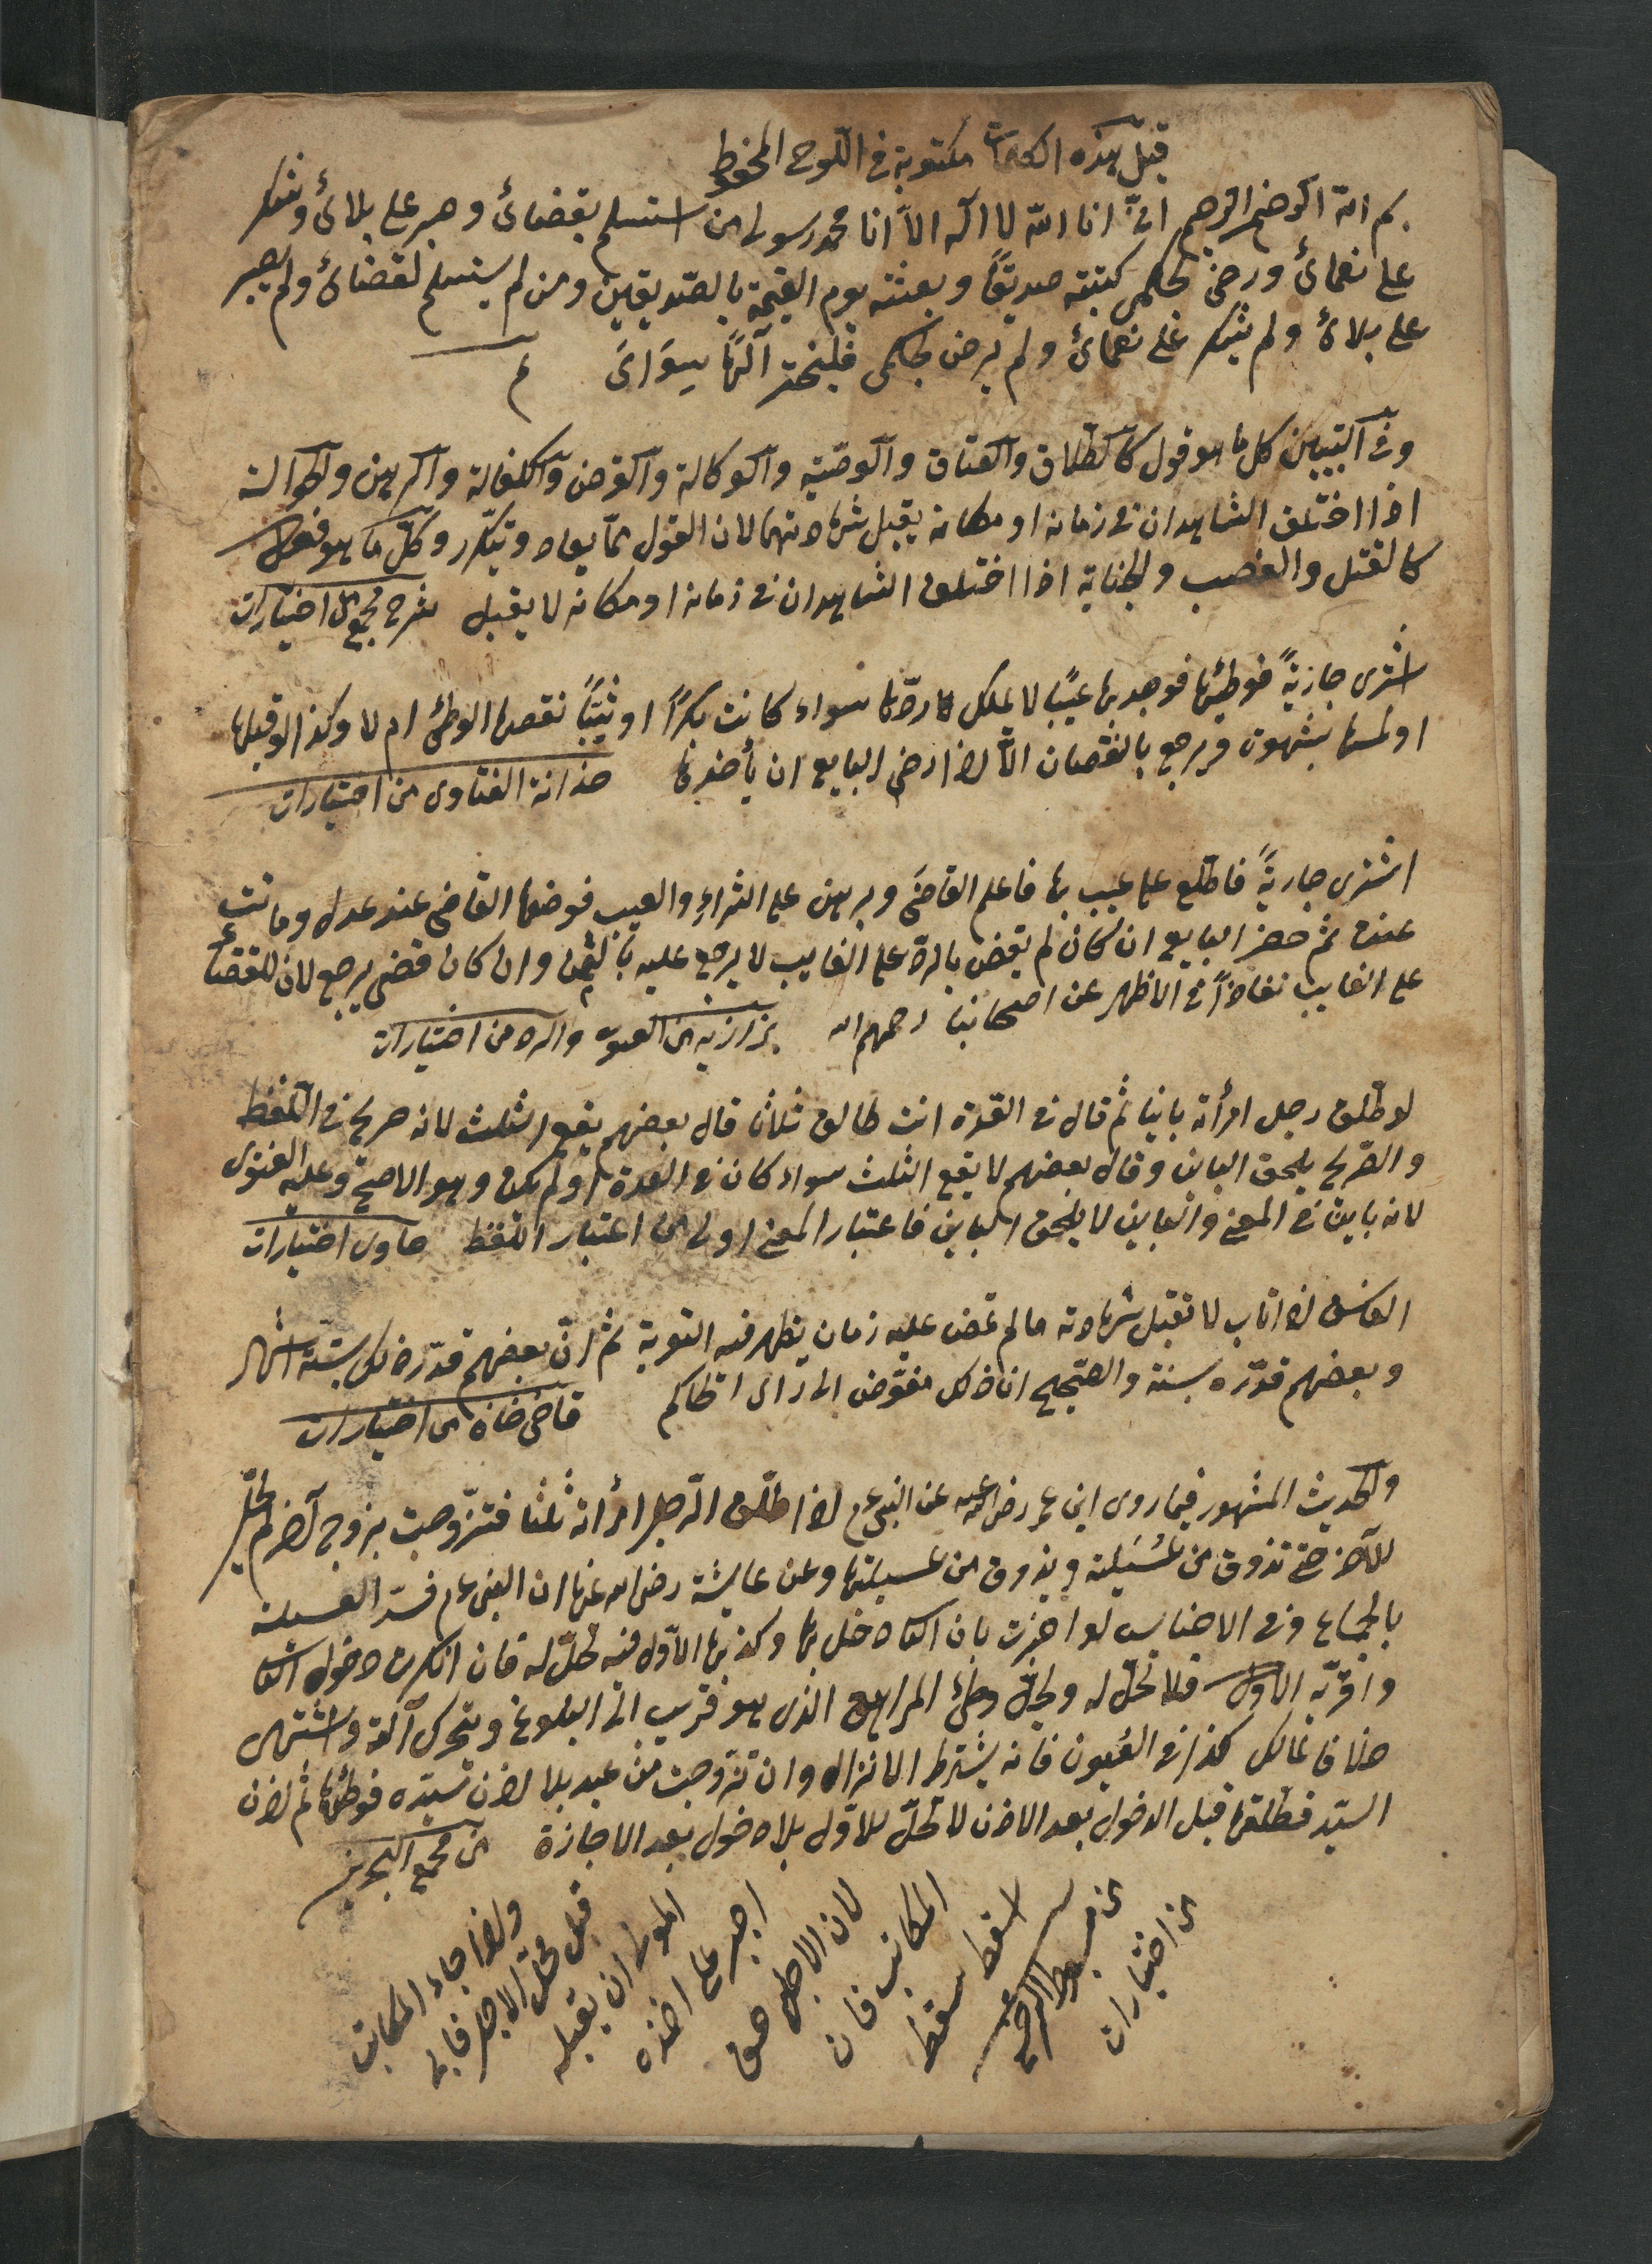 قيل هذه الكلمات مكتوبة فى اللوح المحفوظ
بسم الله الرحمن الرحيم انى انا الله لا اله الا انا محمد رسولى من استسلم بقضائ وصبر على بلائ وشكر
على نعمائ ورضى بحكمى كتبته صديقًا وبعثته يوم القيمة بالصديقين ومن لم يستسلم لقضائ ولم يصبر
على بلائ ولم يشكر على نعمائ ولم يرض بحكمى فليختر آلهًا سِوَائ م
وفى التبيين كل ما هو قول كالطلاق والعتاق والوصية والوكالة والقرض والكفالة والرهن والحوالة
اذا اختلف الشاهدان فى زمانه او مكانه يقبل شهادتهما لان القول مما يعاد ويتكرر وكل ما هو فعل
كالقتل والغصب والجناية اذا اختلف الشاهدان فى زمانه او مكانه لا يقبل شرح مجمع من اختيارات
اشترى جاريةً فوطئها فوجد بها عيبًا لا يملك ردّها سواء كانت بكرًا او ثيبًا نقصها الوطئ ام لا وكذا لو قبلها
او لمسها بشهوة ويرجع بالنقصان الّا اذا رضى البايع ان يأخذها خزانة الفتاوى من اختيارات
اشترى جاريةً فاطلع على عيب بها فاعلم القاضى وبرهن على الشراء والعيب فوضعها القاضى عند عدل وماتت
عنده ثم حضر البايع ان كان لم يقض بالرد على الغايب لا يرجع عليه بالثمن وان كان قضى يرجع لان للقضاء
على الغايب نفاذًا فى الاظهر عن اصحابنا رحمهم الله بزازيه من العيوب والرد من اختيارات
لو طلق رجل امرأته باينا ثم قال فى العدة انت طالق ثلاثا قال بعضهم يقع الثلث لانه صريح فى اللفظ
والصريح يلحق الباين وقال بعضهم لا يقع الثلث سواء كان فى العدة او لم يكن وهو الاصح وعليه الفتوى
لانه باين فى المعنى والباين لا يلحق الباين فاعتبار المعنى اولى من اعتبار اللفظ حاوى اختيارات
الفاسق اذا تاب لا تقبل شهادته ما لم تمض عليه زمان يظهر فيه التوبة ثم انّ بعضهم قدّر ذلك بستة اشهر
وبعضهم قدّره بسنة والصحيح ان ذلك مفوّض الى راى الحاكم قاضى خان من اختيارات
والحديث المشهور فيما روى ابن عمر رضى الله عنه عن النبى عم اذا طلق الرجل امرأته ثلثا فتزوجت بزوج آخر لم تحل
للآخر حتى تذوق من عسيلته ويذوق من عسيلتها وعن عايشة رضى الله عنها ان النبى عم فسر العسيلة
بالجماع وفى الاجناس لو اخبرت بان الثانى دخل بها وكذبها الاول فيه تحل له فان انكرت دخول الثانى
واقر به الاول فلا تحل له ويحل وطئ المراهق الذى هو قريب الى البلوغ ويتحرك آلته واشتهى
خلافا لمالك كذا فى العيون فانه يشترط الانزال وان تزوجت من عبد بلا اذن سيّده فوطئها ثم اذن
السيّد فطلقها قبل الدخول بعد الاذن لا تحلّ للاول بلا دخول بعد الاجازة من مجمع البحرين
واذا جاء المكاتب
قبل محل الاجل فابى
المولى ان يقبله
اجبر على اخذه
لان الاجل حق
المكاتب فان
اسقط سقط
من اختيارات